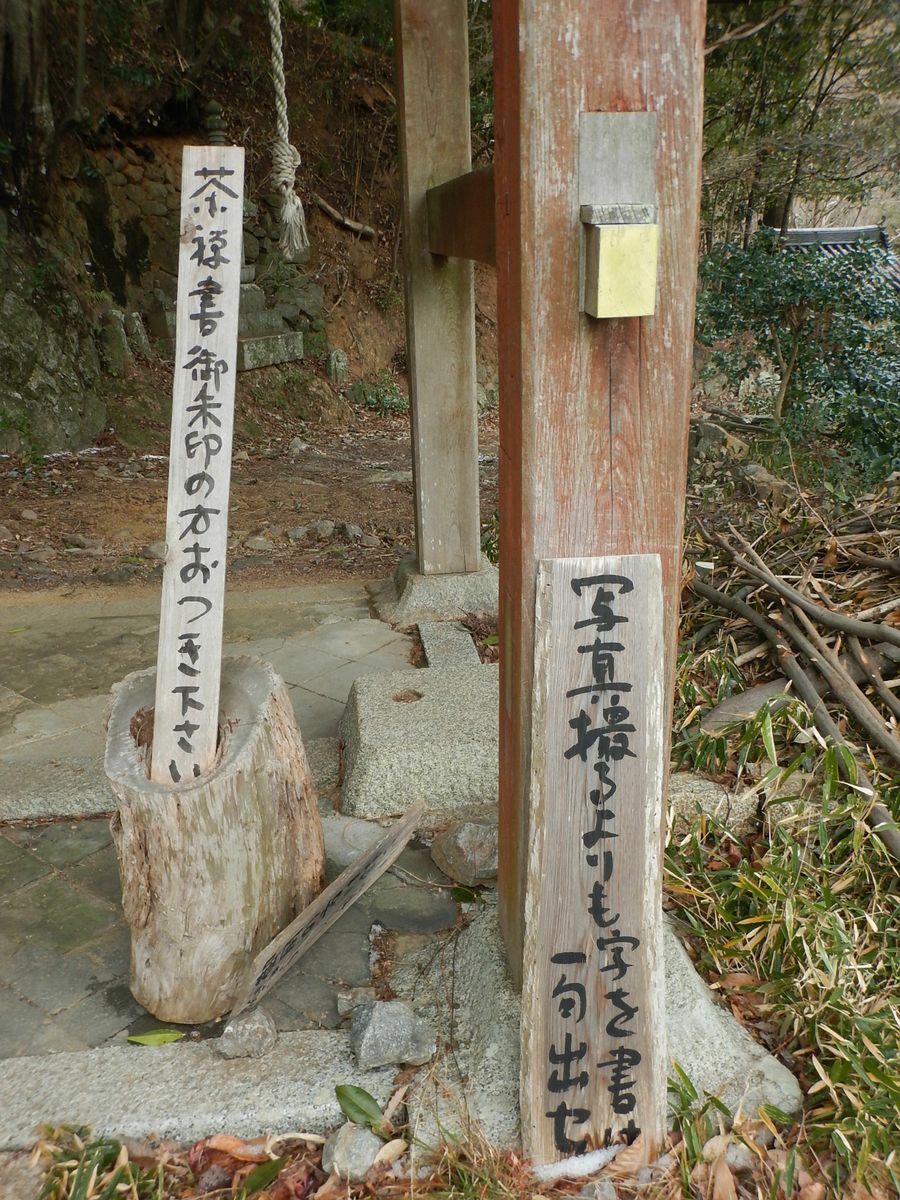 茶禅書御朱印の方おつき下さい
写真撮るよりも字を書け
一句出せ